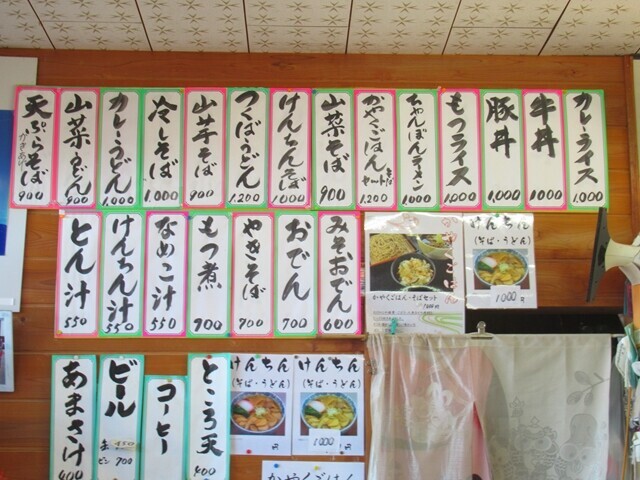 天ぷらそば
かきあげ
900
山菜うどん
900
カレーうどん
1,000
冷しそば
1,000
山芋そば
900
つくばうどん
1,200
けんちんそば
1000
山菜そば
900
かやくごはん
そばセット
1,200
ちゃんぽんラーメン
1000
もつライス
1,000
豚丼
1,000
牛丼
1000
カレーライス
1,000
とん汁
550
けんちん汁
550
なめこ汁
550
もつ煮
700
やきそば
700
おでん
700
みそおでん
600
かやくごはん
かやくごはん・そばセット
けんちん
(そば・うどん)
1000円
あまさけ
400
ビール
缶 450
ビン 700
コーヒー
ところ天
400
けんちん
(そば・うどん)
円
けんちん
(そば・うどん)
1000
円
かやくごはん